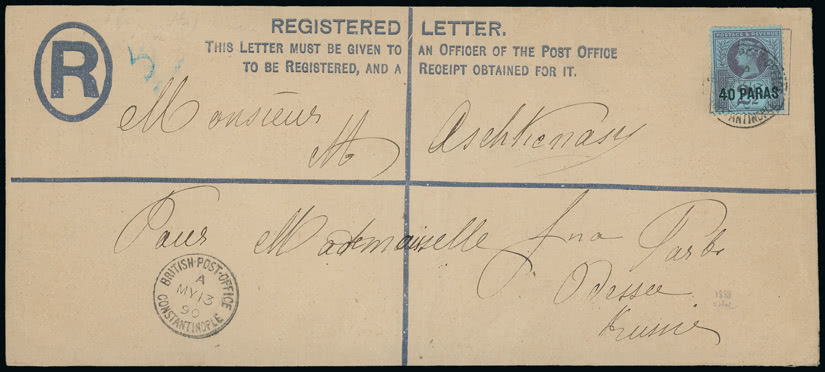 REGISTERED LETTER.
THIS LETTER MUST BE GIVEN TO AN OFFICER OF THE POST OFFICE
TO BE REGISTERED, AND A RECEIPT OBTAINED FOR IT.
R
5
POSTAGE & REVENUE
40 PARAS
Monsieur
M Aschkenasy
Pour Mademoiselle
Odessa
Russie
BRITISH·POST·OFFICE
A
MY 13
90
CONSTANTINOPLE